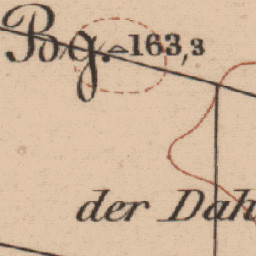 Bg. 163,3
der Dah